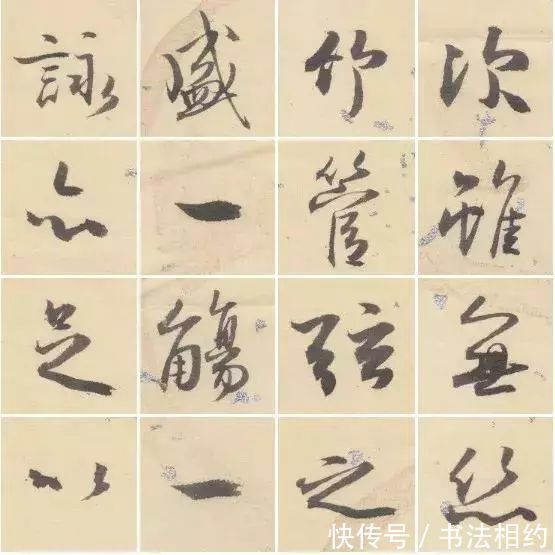 次雖無絲
竹管弦之
盛一觴一
詠亦足以
快传号 / 书法相约